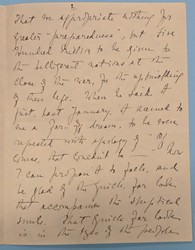 3
that we appropriate nothing for
greater "preparedness", but five
hundred million to be given to
the belligerent nations at the
close of the war, for the upbuilding
of their life. When he said it
just past January, it seemed to
me a far-off dream, to be even
repeated with apology of "Of
course, that couldn't be — Now
I can propose it to facts, and
be glad of the quick, far look
that accompanies the skeptical
smile. That quick far look
is in the eyes of the people